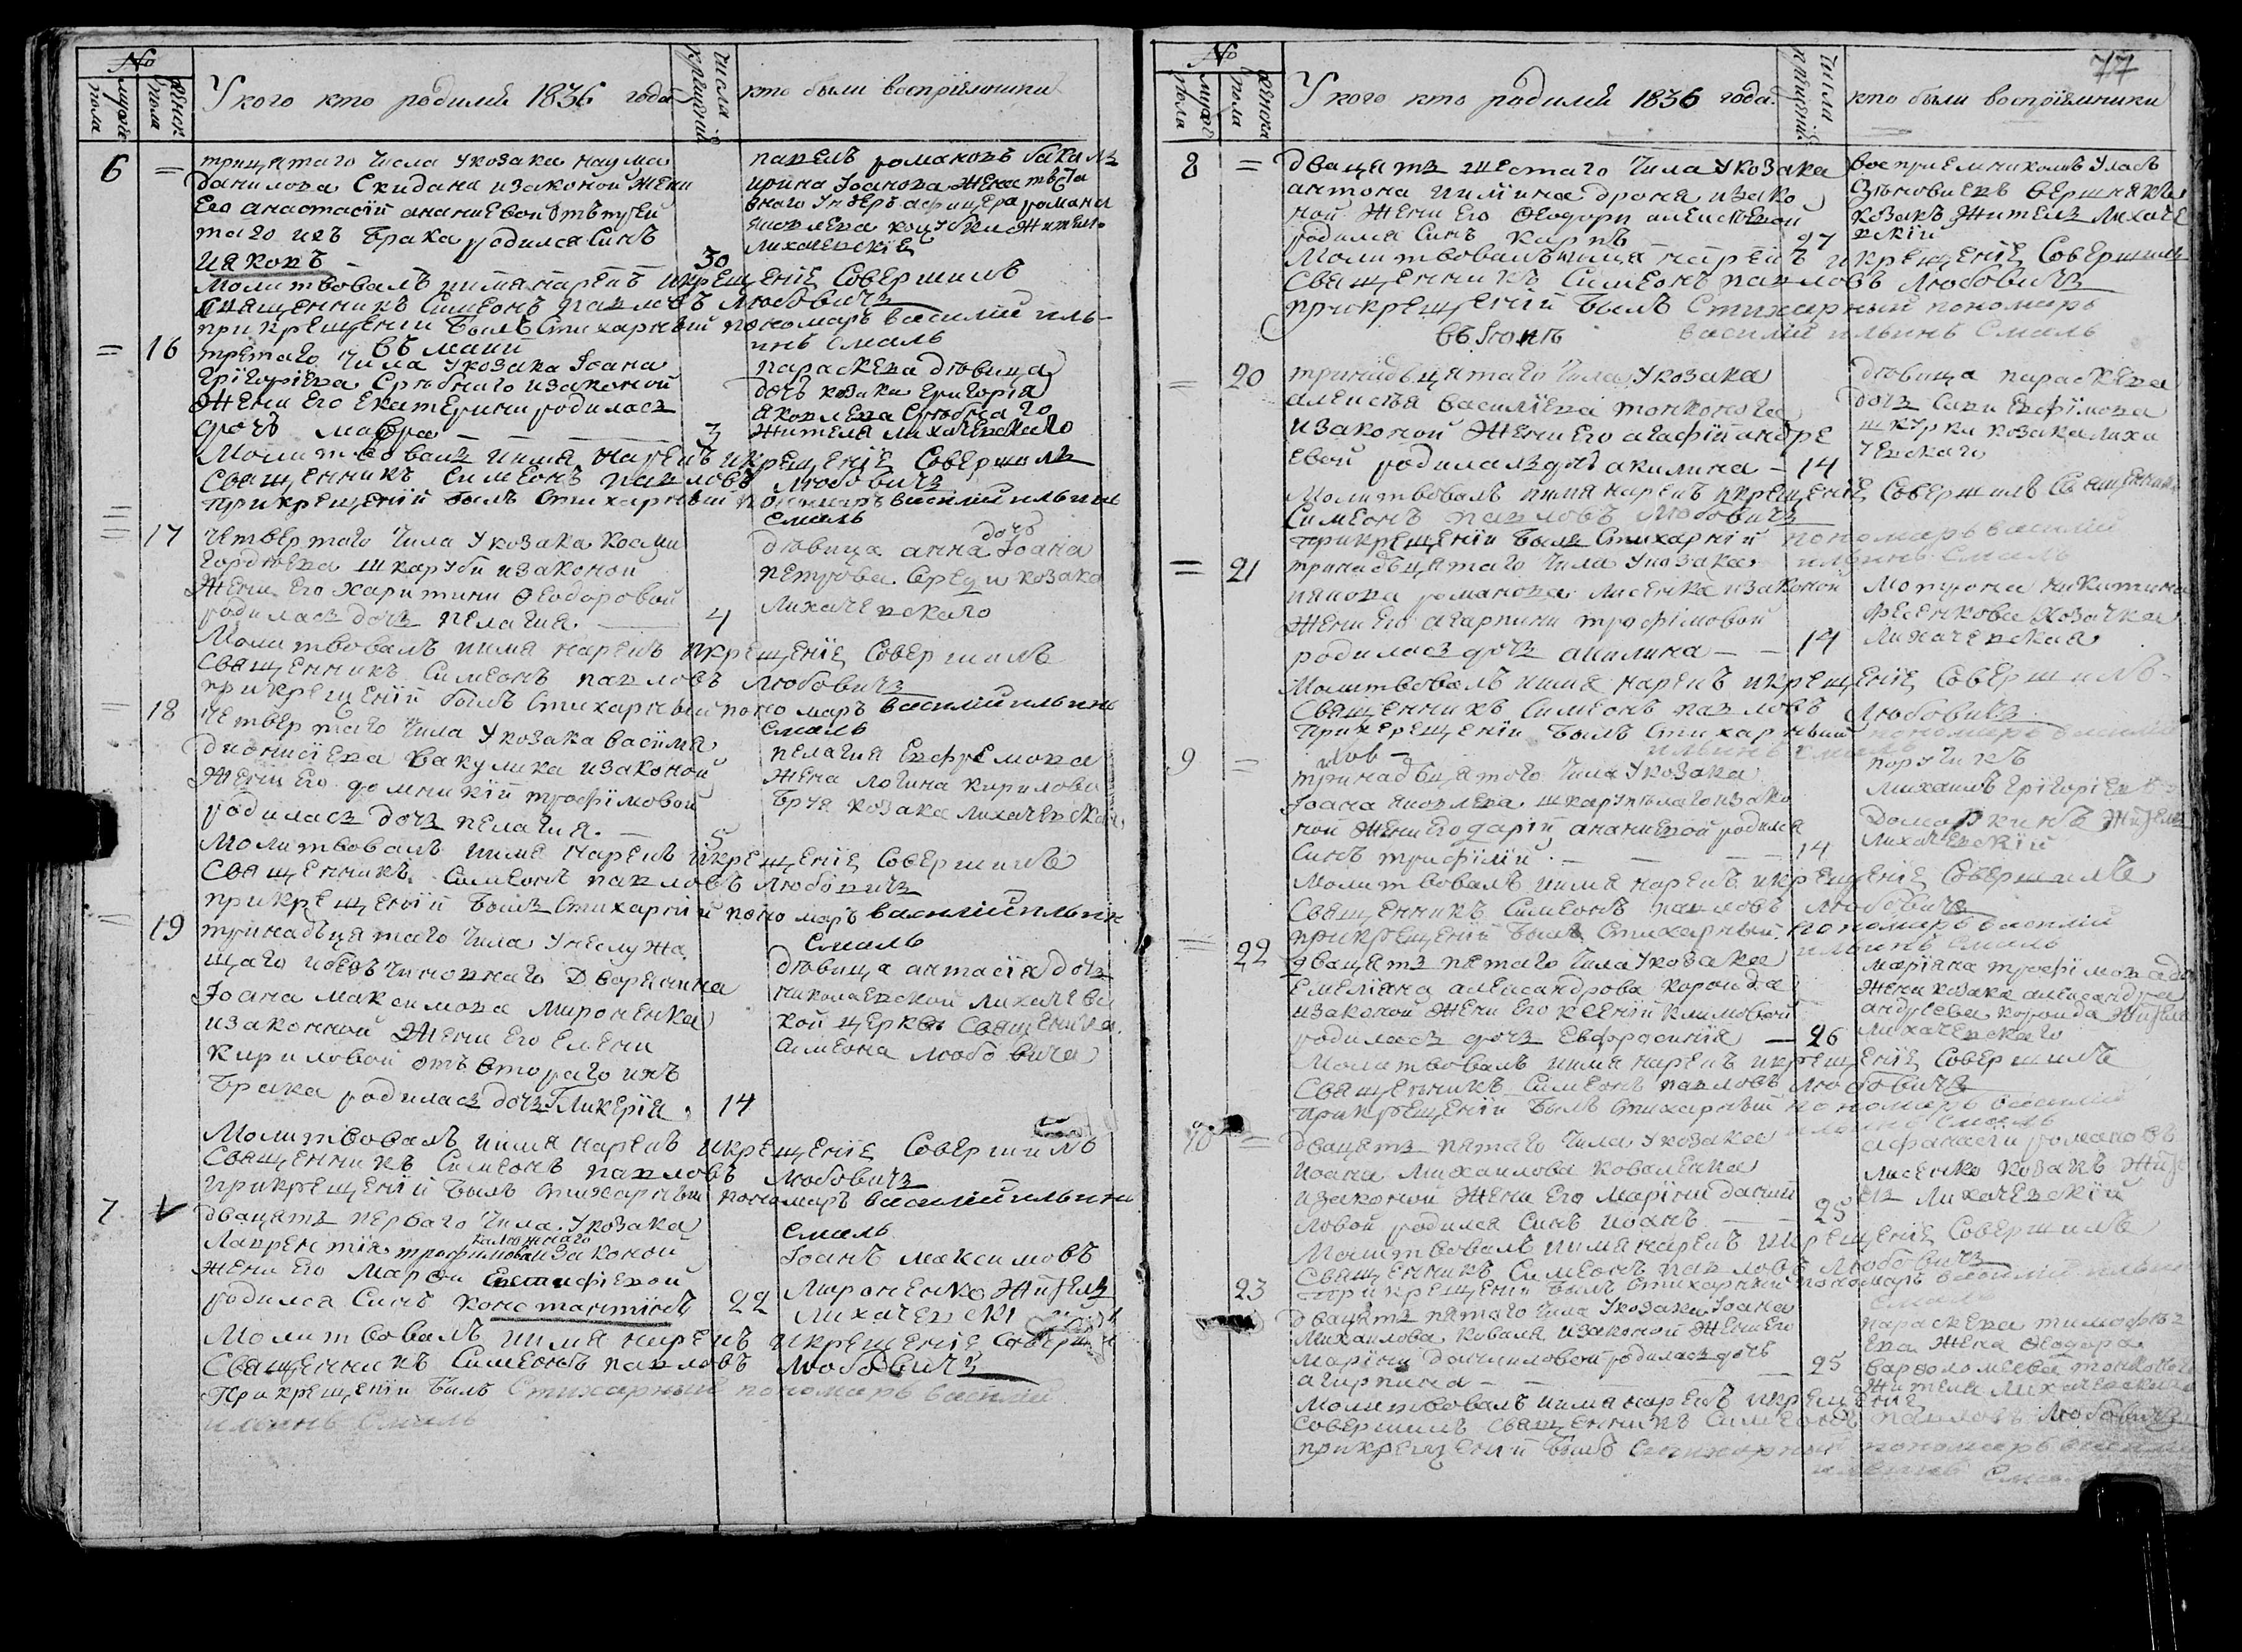 №
мужес. пола
женск. пола
У кого кто родился 1836 года
числа крещений
кто были воспріемники
6 =
трицятаго числа у козака наума
данилова Скидана изаконой жени
Его анастасій ананиевой отъ
таго ихъ брака родился Синъ
Иаковъ — 30
павелъ романовъ
ирина Іоанова жена
внаго ундеръ афицера романа
яковлева жител
лихачевскіе
Молитвовалъ иимя нарекъ икрещеніе Совершилъ
Священникъ Симеонъ павловъ Любовичъ
прикрещении былъ Стихарный пономаръ василий иль-
инъ Смаль
въ маии
= 16
третаго числа у козака Іоана
Григоріева Срѣбнаго изаконой
жени Его Екатерини родилася
дочъ мавра — 3
параскева дѣвица
дочъ козака григорія
яковлева Срѣбнаго
жителя лихачевскаго
Молитвовалъ иимя нарекъ икрещеніе Совершилъ
Священникъ Симеонъ павловъ Любовичъ
прикрещеній былъ Стихарный пономаръ василий ильинъ
Смаль
= 17
четвертаго числа у козака косми
гордѣева шкаруби изаконой
Жени Его харитини Феодоровой
родилась дочъ пелагия. — 4
дѣвица анна дочъ Іоана
петрова Середи козака
Лихачевскаго
Молитвовалъ иимя нарекъ икрещеніе Совершилъ
Священникъ Симеонъ павловъ Любовичъ
прикрещеній былъ Стихарный пономаръ василий ильинъ
Смаль
= 18
четвертаго числа у козака василя
дионисіева вакулика изаконой
Жени Его домникій трофімовой
родилась дочъ пелагия. — 5
пелагия Евфремова
жена логина кирилова
козака лихачевскаго
Молитвовалъ иимя нарекъ икрещеніе Совершилъ
Священникъ Симеонъ павловъ Любовичъ
прикрещеній былъ Стихарній пономаръ василий ильинъ
Смаль
= 19
тринадьцятаго числа у неслужа
щаго Дворянина
Іоана максимова Мироненка
изаконной Жени Его Елени
кириловой отъ втораго ихъ
брака родилась дочъ Гликерія. 14
дѣвица дочъ
николаевской лихачевс
кой церкви Священика
симеона любовича
Молитвовалъ иимя нарекъ икрещеніе Совершилъ
Священникъ Симеонъ павловъ Любовичъ
прикрещеній былъ Стихарный пономаръ василий ильинъ
Смаль
7
двацятъ перваго числа у козака
Лаврентія трофимова изаконой
жени Его Марфи Евстафіевой
родился Синъ константинъ 22
Іоанъ максимовъ
Мироненко жител
лихачевскі
Молитвовалъ иимя нарекъ икрещеніе Соверши
Священникъ Симеонъ павловъ Любовичъ
Прикрещеніи былъ Стихарный пономаръ василий
ильинъ Смаль
77
№
мужес. пола
женска пола
У кого кто родился 1836 года.
числа крещений
кто были воспріемники
8 =
двацятъ шестаго числа у козака
антона дроня изако
ной жени Его Феодори алексѣевой
родился Синъ карпъ 27
воспрйемникомъ уласъ
вершнякъ
козакъ житель лихаче
вскій
Молитвовалъ иимя нарекъ икрещеніе Совершилъ
Священникъ Симеонъ павловъ Любовичъ
прикрещеній былъ Стихарный пономаръ
василий ильинъ Смаль
въ Іюнѣ
= 20
тринадьцятаго числа у козака
алексѣя василіева тонконога
изаконой жени Его агафій андре
евой родилась дочъ акилина — 14
дѣвица параскева
дочъ Сави Евфімова
шкурки козака лиха
чевскаго
Молитвовалъ иимя нарекъ икрещеніе Совершилъ Священникъ
Симеонъ павловъ Любовичъ
прикрещеніи былъ Стихарній пономаръ василий
ильинъ Смаль
= 21
тринадьцятаго числа у козака
иякова романова лисенка изаконой
жени Его агарпини трофімовой
родилась дочъ акилина — — 14
Мотрона никитина
фесенкова козачка
лихачевская
Молитвовалъ иимя нарекъ икрещеніе Совершилъ
Священникъ Симеонъ павловъ Любовичъ
прикрещеніи былъ Стихарный пономаръ василий
ильинъ Смаль
9 =
тринадьцятого числа у козака
Іоана яковлева изако
ной жени Его дарій ананиевой родился
Синъ трифілій. — — 14
поручикъ
михаилъ григоріевъ
житель
лихачевскій
Молитвовалъ иимя нарекъ икрещеніе Совершилъ
Священникъ Симеонъ павловъ Любовичъ
прикрещеніи былъ Стихарный пономаръ василий
ильинъ Смаль
= 22
двацятъ пятаго числа у козака
Емеліана александрова коронда
изаконой жени Его ксеній климовой
родилась дочъ Евфросинія — 26
Маріяна трофімовада
жена козака александра
андреева коронда жителя
лихачевскаго
Молитвовалъ иимя нарекъ икрещеніе Совершилъ
Священникъ Симеонъ павловъ Любовичъ
прикрещеніи былъ Стихарный пономаръ василий
ильинъ Смаль
10 =
двацятъ пятаго числа у козака
иоана михаилова коваленка
изаконой жени Его маріни даній
ловой родился Синъ иоанъ — — 25
афанасіи романовъ
лисенко козакъ жит
ель лихачевскій
Молитвовалъ иимя нарекъ икрещеніе Совершилъ
Священникъ Симеонъ павловъ Любовичъ
прикрещеніи былъ Стихарный пономаръ василий ильинъ
Смаль
23
двацятъ пятаго числа у козака Іоана
михаилова коваля изаконой жени Его
маріни даниловой родилась дочъ
агирпина — — 25
параскева тимофѣ
ева жена Феодора
варфоломеева тонконога
жителя лихачевскаго
Молитвовалъ иимя нарекъ икрещеніе
Совершилъ Священникъ Симеонъ павловъ Любовичъ
прикрещеніи былъ Стихарный пономаръ василий
ильинъ Смаль